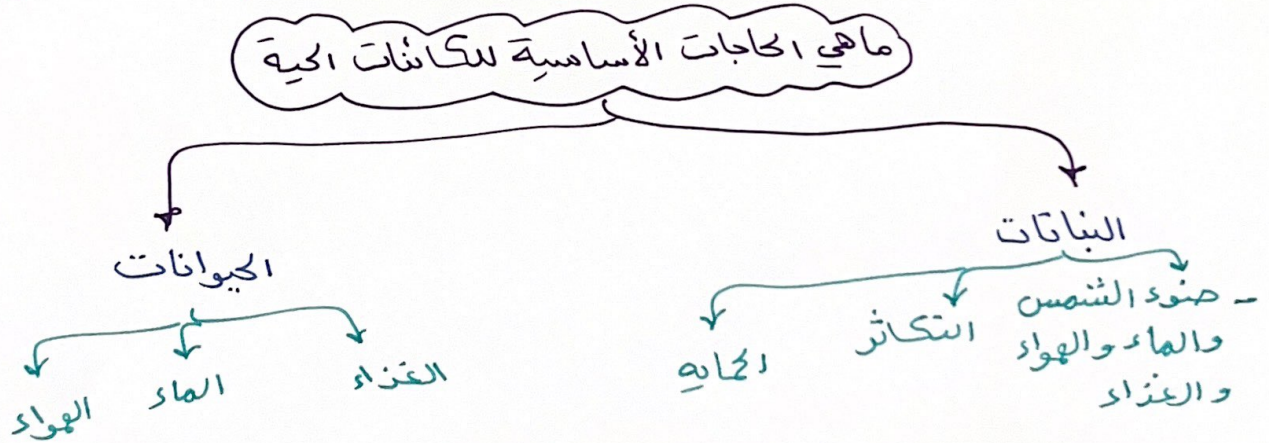 ماهي الحاجات الأساسية للكائنات الحية
النباتات
- ضوء الشمس
والماء والهواء
والغذاء
التكاثر
الحمايه
الحيوانات
الغذاء
الماء
الهواء